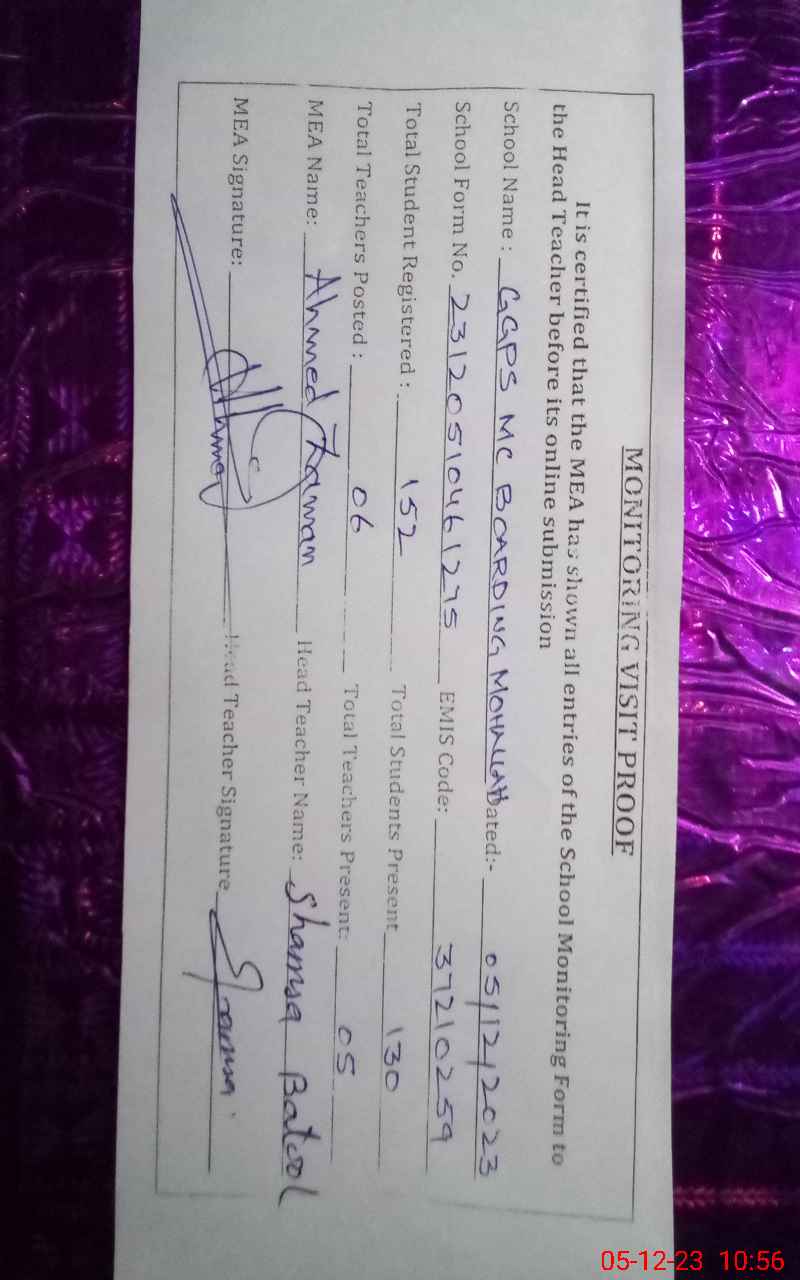 MONITORING VISIT PROOF
It is certified that the MEA has shown all entries of the School Monitoring Form to
the Head Teacher before its online submission
School Name : GGPS MC BOARDING MOHALLAH Dated:- 05/12/2023
School Form No. 231205104461275 EMIS Code: 37210259
Total Student Registered : 152 Total Students Present 130
Total Teachers Posted : 06 Total Teachers Present: 05
MEA Name: Ahmed Zaman Head Teacher Name: Shamsa Batool
MEA Signature: Ahmed Head Teacher Signature Shamsa
05-12-23 10:56